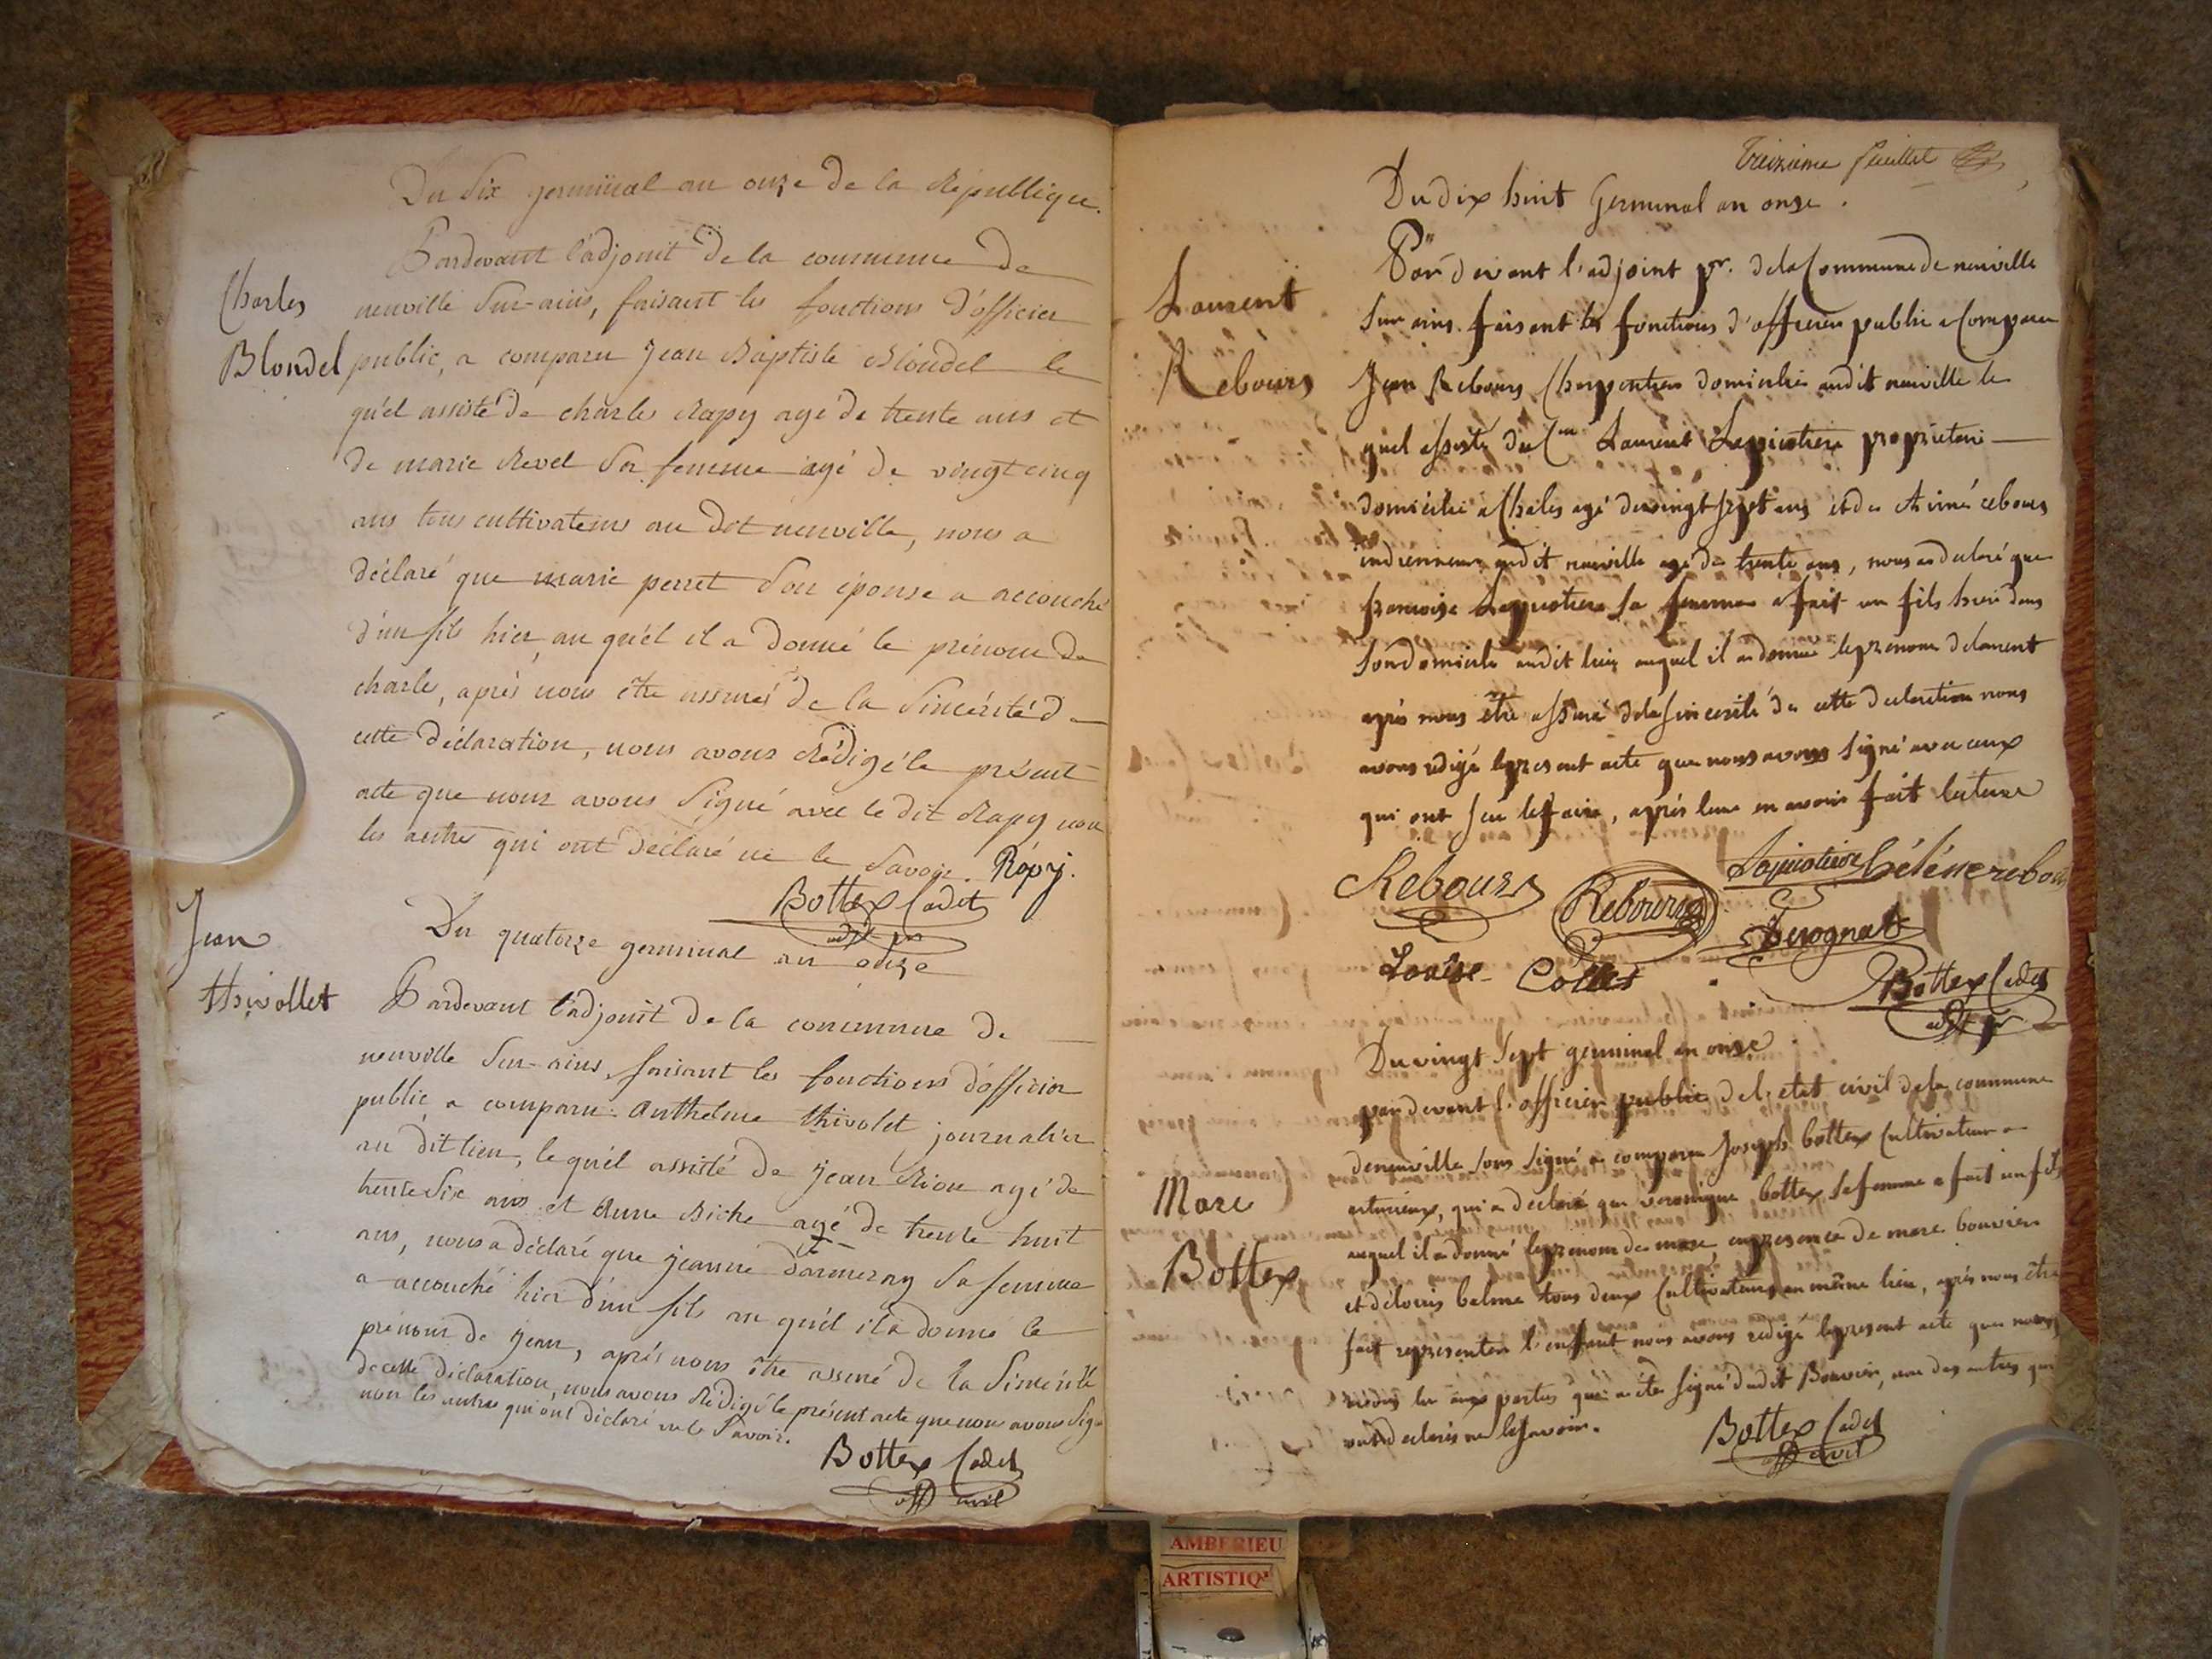 Du Six germinal an onze de la République.
Pardevant l'adjoint de la commune de
Charles
neuville Sur-ains, faisant les fonctions d'officier
Blondel
public, a comparu Jean Baptiste Blondel le
quel assisté de charles Rapy agé de trente ans et
de marie Revel Sa femme agé de vingt cinq
ans tous cultivateurs au dit neuville, nous a
déclaré que marie perret Son épouse a accouché
d'un fils hier, au quél il a donné le prénom de
charles, aprés nous être assurés de la Sincérité de
cette déclaration, nous avons Rédigé le présent
acte que nous avons Signé avec le dit Rapy non
les autres qui ont déclaré ne le Savoir. Rópy.
Bottex Cadet
adjt pr
Jean
thivollet
Du quatorze germinal an onze
Pardevant l'adjoint de la commune de
neuville Sur-ains, faisant les fonctions d'officier
public, a comparu Anthelme thivolet journalier
au dit lieu, le quél assisté de Jean Rion agé de
trente Six ans et Anne Biche agé de trente huit
ans, nous a déclaré que jeanne darmeray Sa femme
a accouché hier d'un fils au quél il a donné le
prénom de Jean, aprés nous être assuré de la Sincérité
de cette déclaration, nous avons Rédigé le présent acte que nous avons Sig
non les autres qui ont déclaré ne le Savoir.
Bottex Cadet
off civil
treizieme feuillet
Du dix huit Germinal an onze.
Laurent
Rebours
Par devant l'adjoint pr. de la Commune de neuville
Sur ains faisant les fonctions d'officier public a Comparu
Jean Rebours Charpentier domicilié audit neuville le
quel assisté du Cen Laurent Lapicotiere propriétaire
domicilié a Chales agé de vingt sept ans et de Aimé rebours
indienneur audit neuville agé de trente ans, nous a declaré que
francoise Lapicotiere Sa femme a fait un fils hier dans
Son domicile audit lieu auquel il a donné le prenom de laurent
aprés nous être assuré de la sincerité de cette declaration nous
avons redigé le present acte que nous avons Signé avec ceux
qui ont Scu le faire, aprés leur en avoir fait lecture
Rebours Rebours Lapicotiere hélène rebours
Louise Collet Derognat
Bottex Cadet
adjt pr
Du vingt Sept germinal an onze
par devant l'officier public de l'etat civil de la commune
Marc
Bottex
de neuville Sous Signé a comparu Joseph bottex Cultivateur a
, qui a declaré que veronique bottex Sa femme a fait un fils
auquel il a donné le prenom de marc en presence de marc bouvier
et de louis balme tous deux Cultivateurs au même lieu, aprés nous être
fait representer l'enfant nous avons redigé le present acte que nous
avons lu aux parties qui a été Signé dudit Bouvier, non des autres qui
ont declarés ne le Savoir.
Bottex Cadet
off civil
AMBERIEU
ARTISTIQ